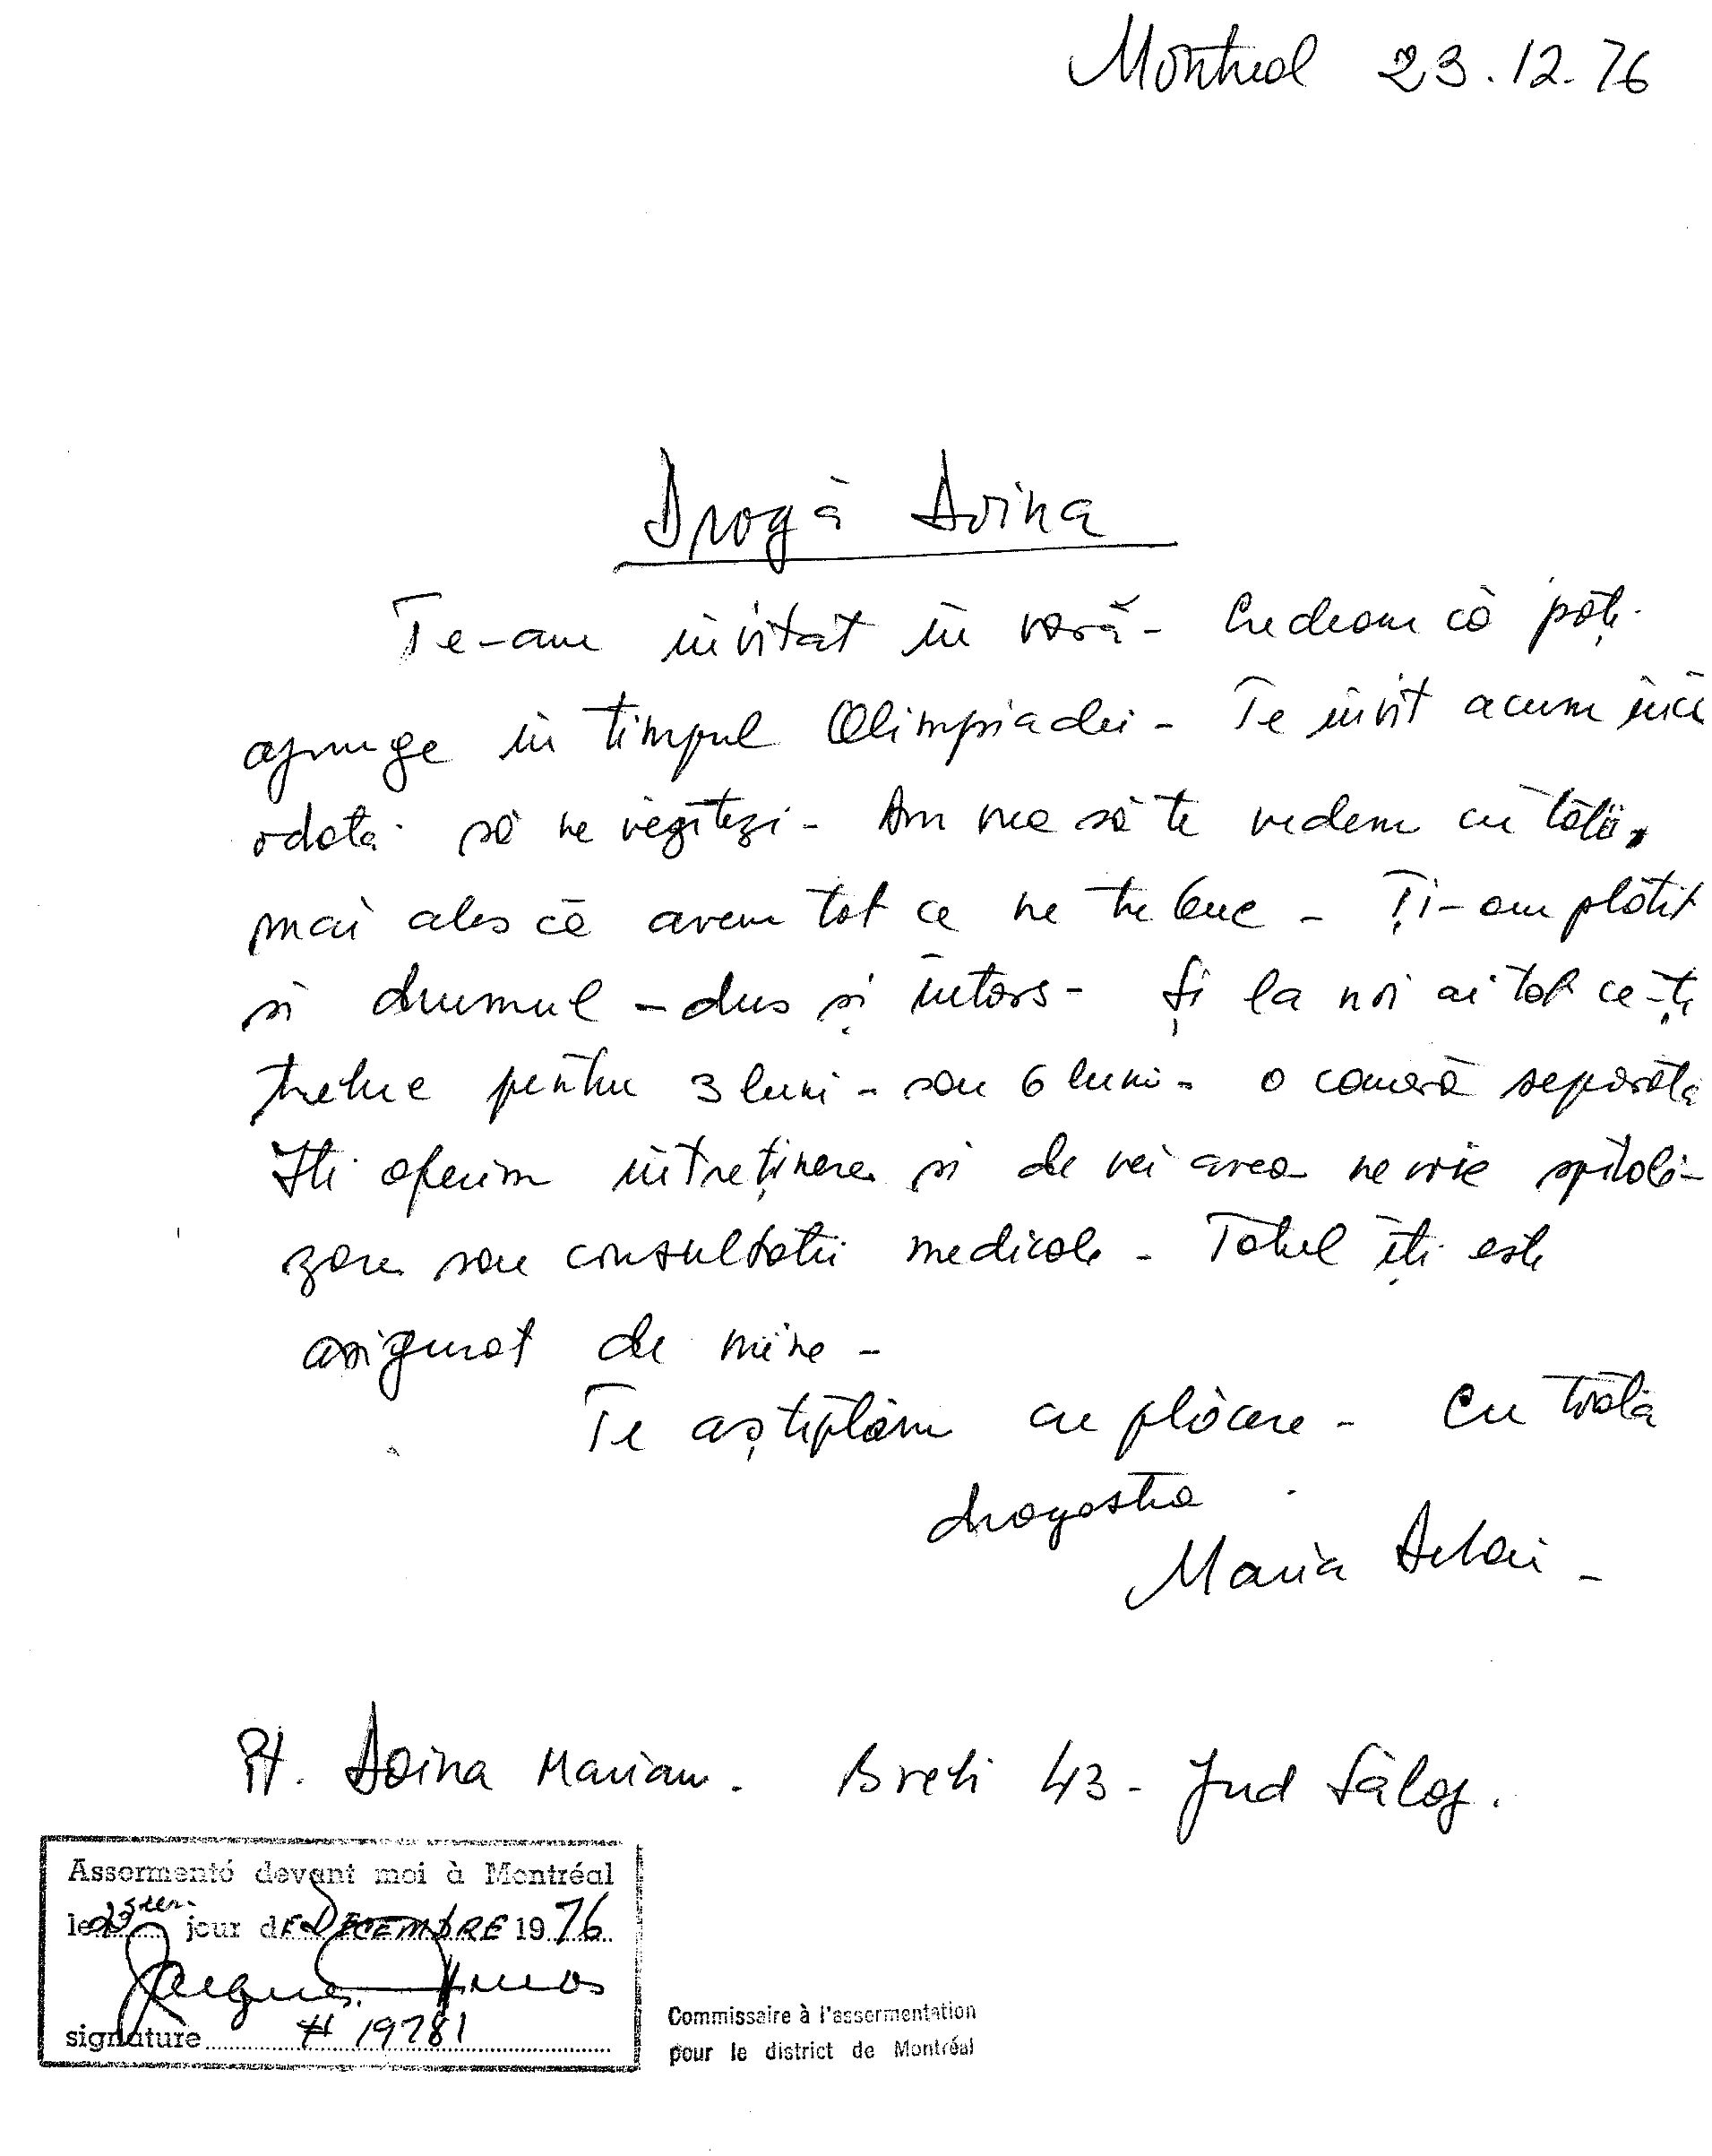 Montreal 23.12.76
Dragă Doina
Te-am invitat în vară - Credeam că poți
ajunge în timpul Olimpiadei - Te invit acum încă
odată să ne vezitezi - Am vrea să te vedem cu toții,
mai ales că avem tot ce ne trebue - Ți-am plătit
si drumul - dus și întors - Și la noi ai tot ce-ți
trebue pentru 3 luni - sau 6 luni - o cameră separată
Iti oferim intreținere si de vei avea nevoie spitali-
zare sau consultatii medicale - Totul iți este
asigurat de mine -
Te aștiptăm cu plăcere - Cu toată
dragostea
Maria -
Pt. Doina Marian. 43 - Jud Sălaj.
Assermenté devant moi à Montréal
le 23 jour de DECEMBRE 1976
Jacques
signature # 19781
Commissaire à l'assermentation
pour le district de Montréal